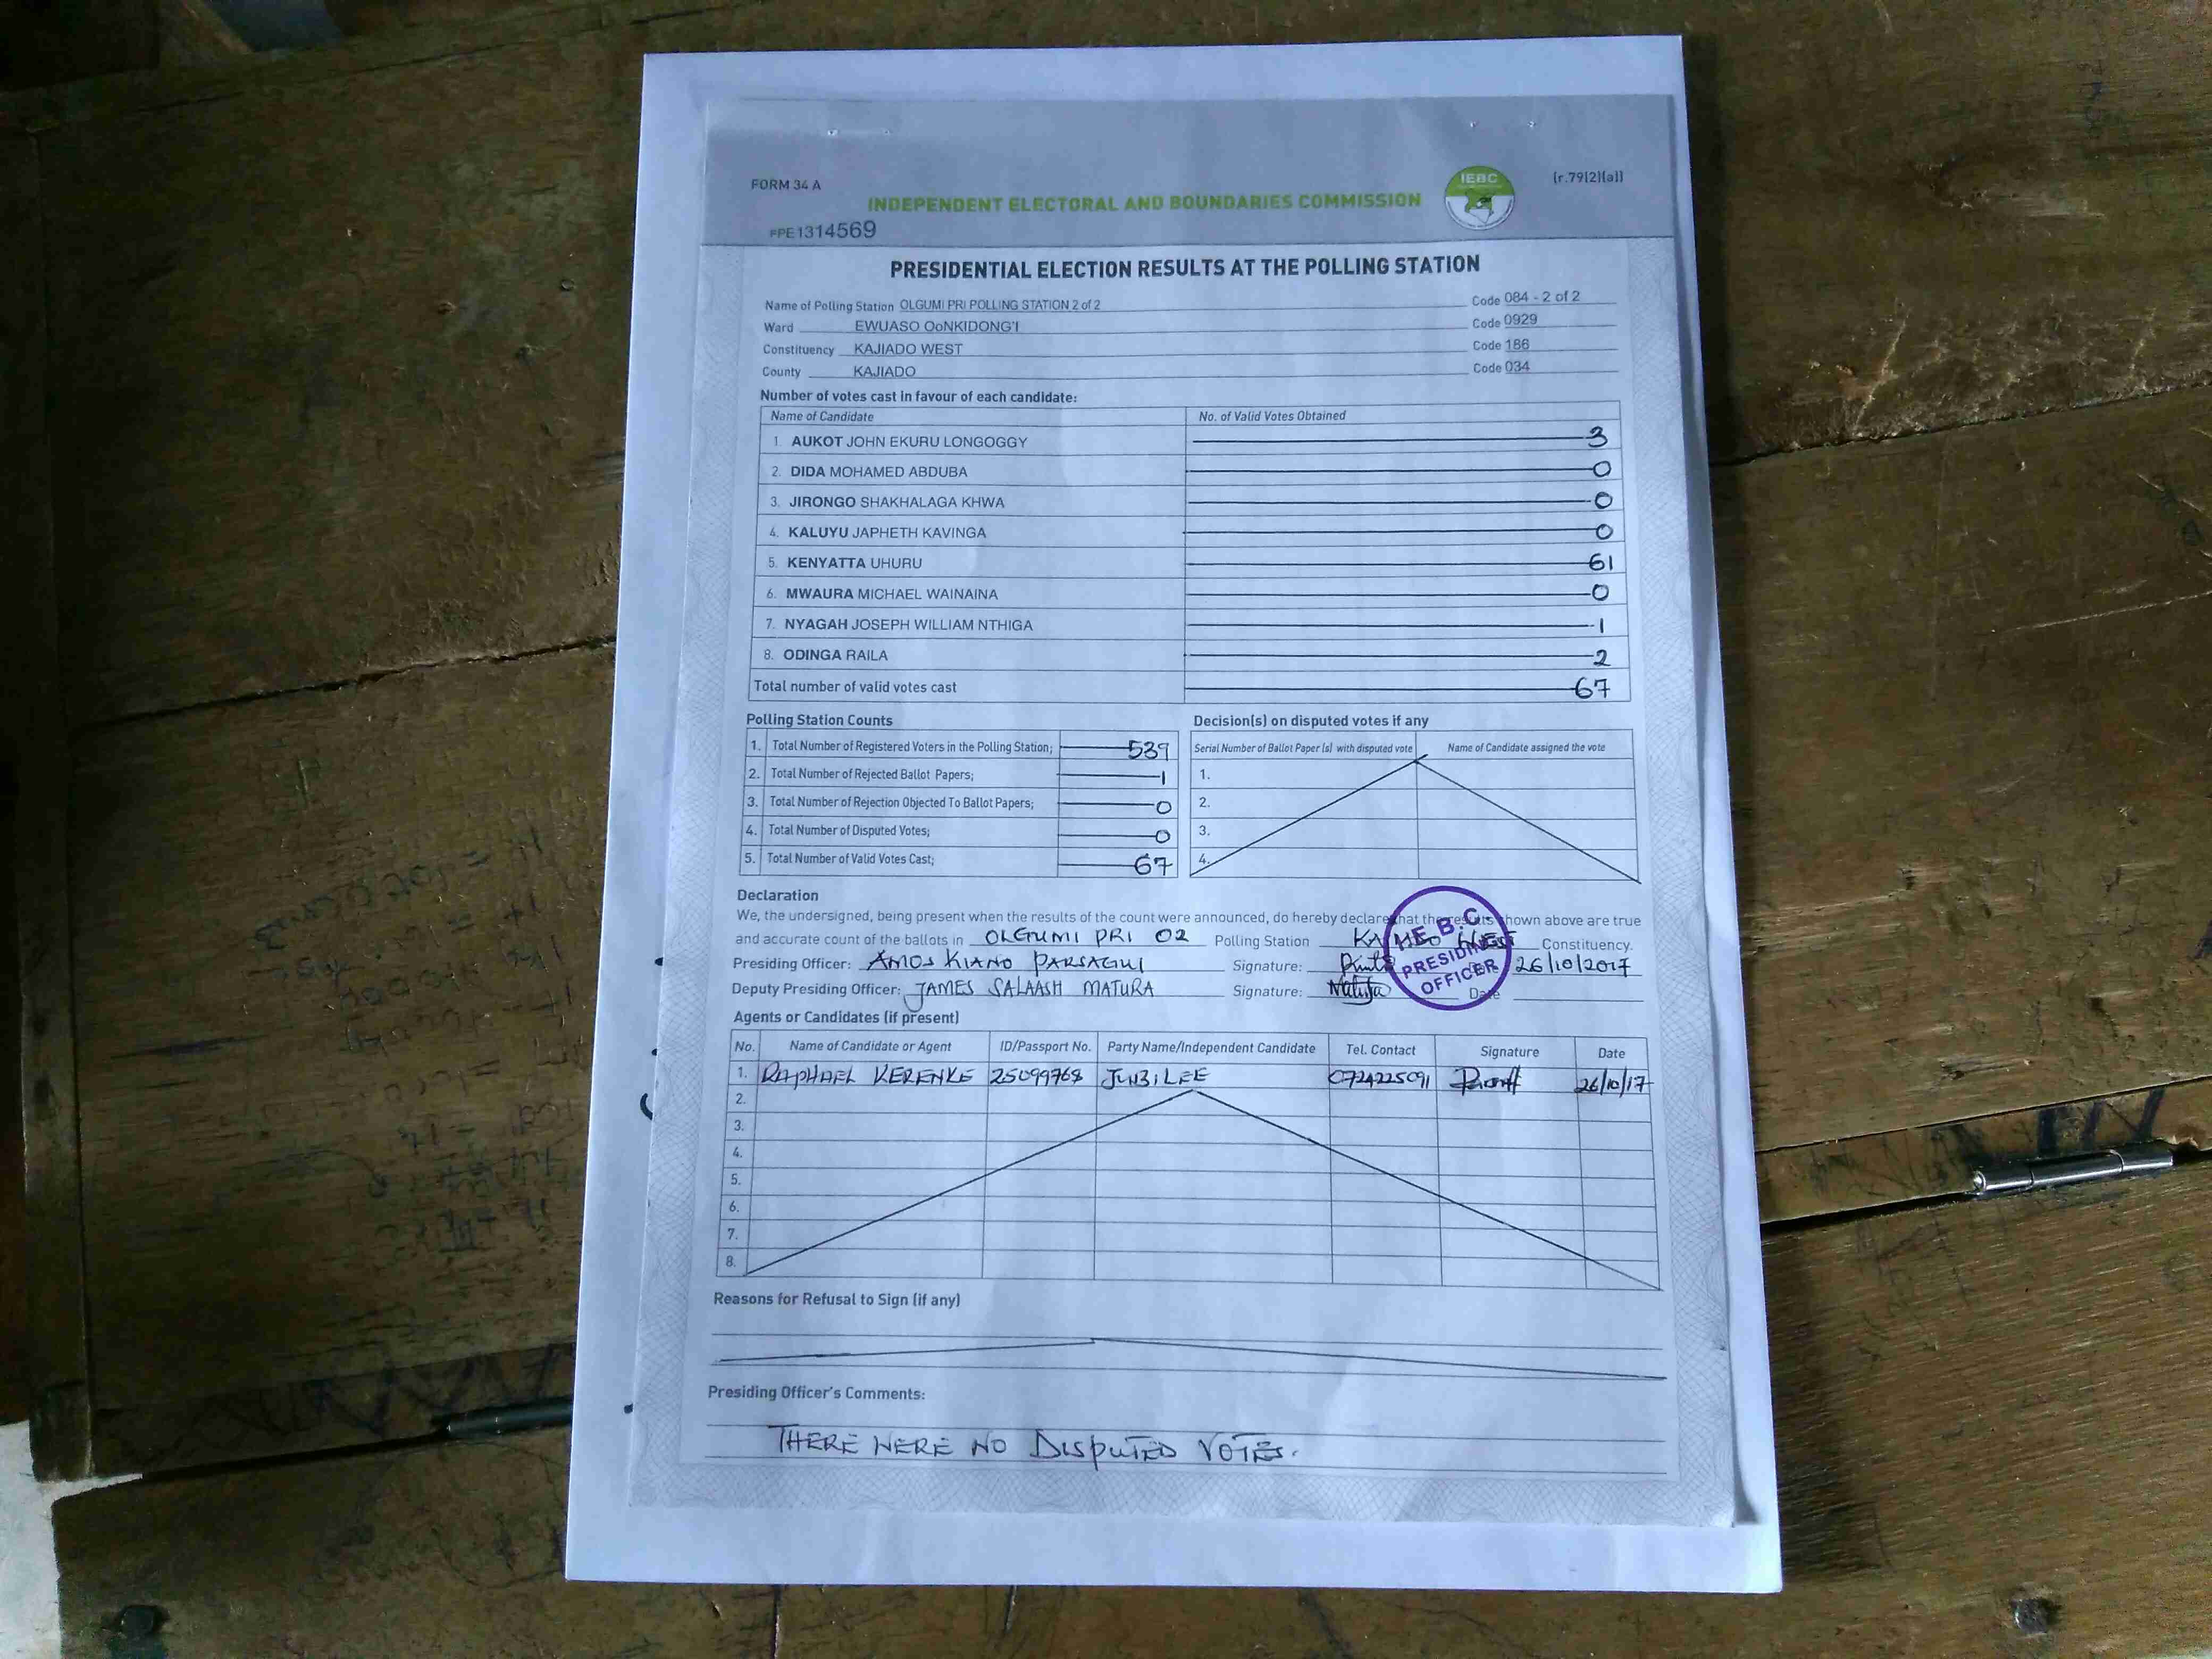 FORM 34 A
IEBC
(r.79(2)(a))
INDEPENDENT ELECTORAL AND BOUNDARIES COMMISSION
#PE1314569
PRESIDENTIAL ELECTION RESULTS AT THE POLLING STATION
Name of Polling Station OLGUMI PRI POLLING STATION 2 of 2 Code 084 - 2 of 2
Ward EWUASO OoNKIDONG'I Code 0929
Constituency KAJIADO WEST Code 186
County KAJIADO Code 034
Number of votes cast in favour of each candidate:
Name of Candidate No. of Valid Votes Obtained
1. AUKOT JOHN EKURU LONGOGGY 3
2. DIDA MOHAMED ABDUBA 0
3. JIRONGO SHAKHALAGA KHWA 0
4. KALUYU JAPHETH KAVINGA 0
5. KENYATTA UHURU 61
6. MWAURA MICHAEL WAINAINA 0
7. NYAGAH JOSEPH WILLIAM NTHIGA 1
8. ODINGA RAILA 2
Total number of valid votes cast 67
Polling Station Counts
1. Total Number of Registered Voters in the Polling Station; 539
2. Total Number of Rejected Ballot Papers; 1
3. Total Number of Rejection Objected To Ballot Papers; 0
4. Total Number of Disputed Votes; 0
5. Total Number of Valid Votes Cast; 67
Decision(s) on disputed votes if any
Serial Number of Ballot Paper (s) with disputed vote Name of Candidate assigned the vote
1.
2.
3.
4.
Declaration
We, the undersigned, being present when the results of the count were announced, do hereby declare that the results shown above are true
and accurate count of the ballots in OLGUMI PRI 02 Polling Station KAJIADO WEST Constituency.
Presiding Officer: AMOS KIANO PARSAGUI Signature: 26/10/2017
Deputy Presiding Officer: JAMES SALAASH MATURA Signature: Date
I.E.B.C.
PRESIDING
OFFICER
Agents or Candidates (if present)
No. Name of Candidate or Agent ID/Passport No. Party Name/Independent Candidate Tel. Contact Signature Date
1. RAPHAEL KERENKE 25099768 JUBILEE 0724225091 26/10/17
2.
3.
4.
5.
6.
7.
8.
Reasons for Refusal to Sign (if any)
Presiding Officer's Comments:
THERE WERE NO DISPUTED VOTES.